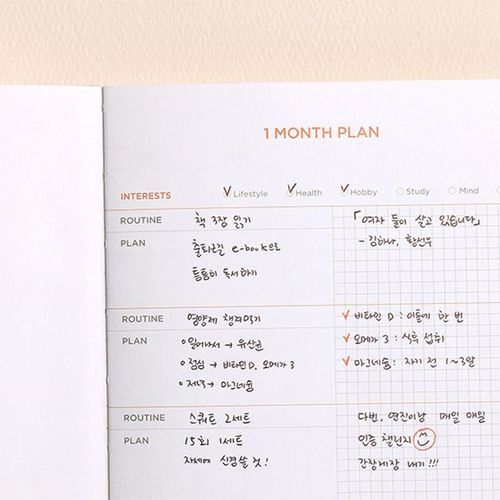 1 MONTH PLAN
INTERESTS Lifestyle Health Hobby Study Mind
ROUTINE 책 3장 읽기
「여자 둘이 살고 있습니다」
PLAN 출퇴근길 e-book으로
- 김하나, 황선우
틈틈히 독서하기
ROUTINE 영양제 챙겨먹기
비타민 D : 이틀에 한 번
PLAN 일어나서 → 유산균
오메가 3 : 식후 섭취
점심 → 비타민D, 오메가 3
마그네슘 : 자기 전 1~3알
저녁 → 마그네슘
ROUTINE 스쿼트 2세트
다빈, 연진이랑 매일 매일
PLAN 15회 1세트
인증 챌린지
자세에 신경쓸 것!
간장게장 내기!!!